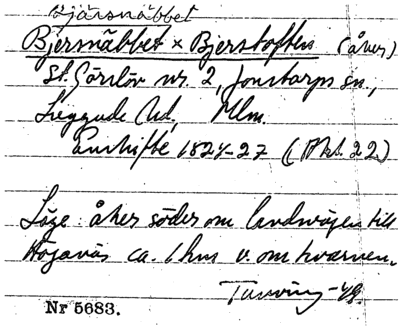 Bjärsnäbbet
Bjersnäbbet × Bjerstoften (åker)
St. Görslöv nr. 2, Jonstorps sn.,
Luggude hd, Mlm.
Enskifte 1824-27 (Akt. 22)
Läge: åker söder om landsvägen till
Höganäs ca. 1 km v. om kvarnen.
Tuneving -49.
Nr 5683.